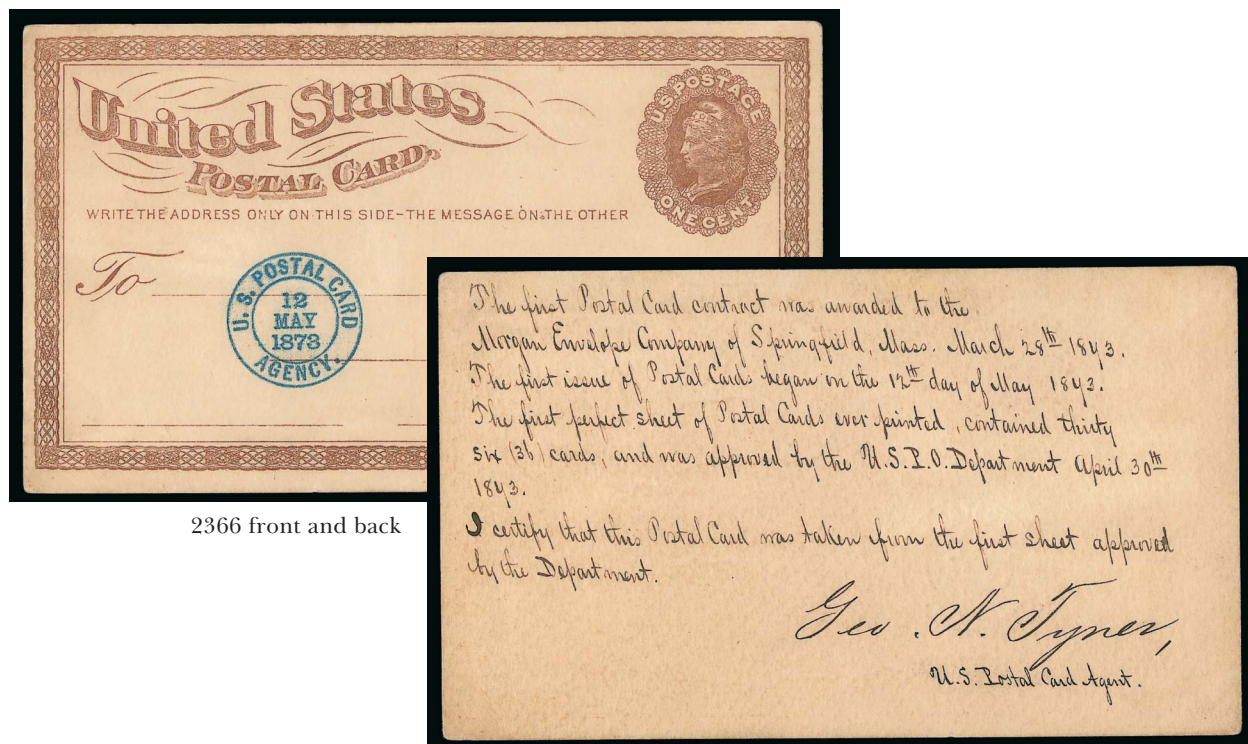 United States
POSTAL CARD.
U.S. POSTAGE
ONE CENT
WRITE THE ADDRESS ONLY ON THIS SIDE-THE MESSAGE ON THE OTHER
To
U. S. POSTAL CARD
12
MAY
1873
AGENCY.
2366 front and back
The first Postal Card contract was awarded to the
Morgan Envelope Company of Springfield, Mass. March 28th 1873.
The first issue of Postal Cards began on the 12th day of May 1873.
The first perfect sheet of Postal Cards ever printed, contained thirty
six (36) cards, and was approved by the U.S.P.O. Department April 30th
1873.
I certify that this Postal Card was taken from the first sheet approved
by the Department.
Geo. N. Tyner,
U.S. Postal Card Agent.